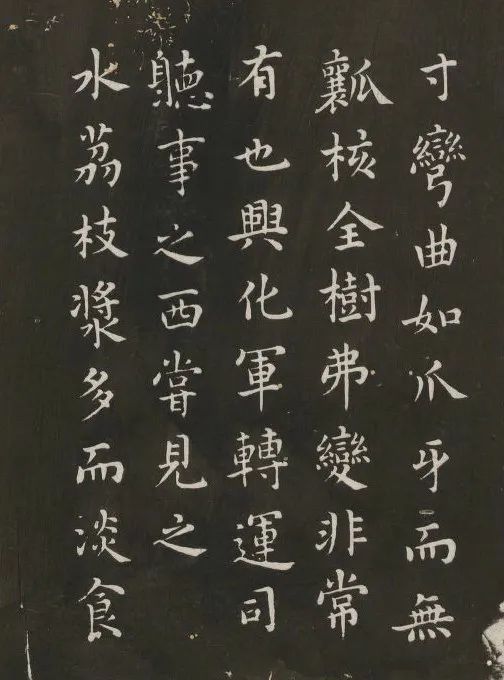 寸彎曲如爪牙而無
瓤核全樹弗變非常
有也興化軍轉運司
聽事之西嘗見之
水荔枝漿多而淡食